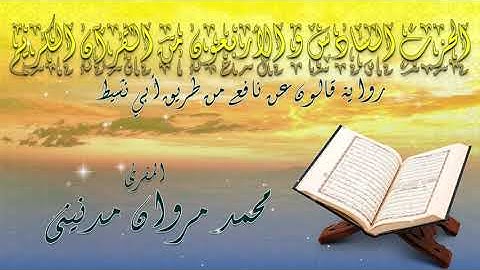 الحزب السادس و الأربعون من القرآن الكريم
رواية قالون عن نافع من طريق أبي نشيط
المقرئ
محمد مروان مدنيني